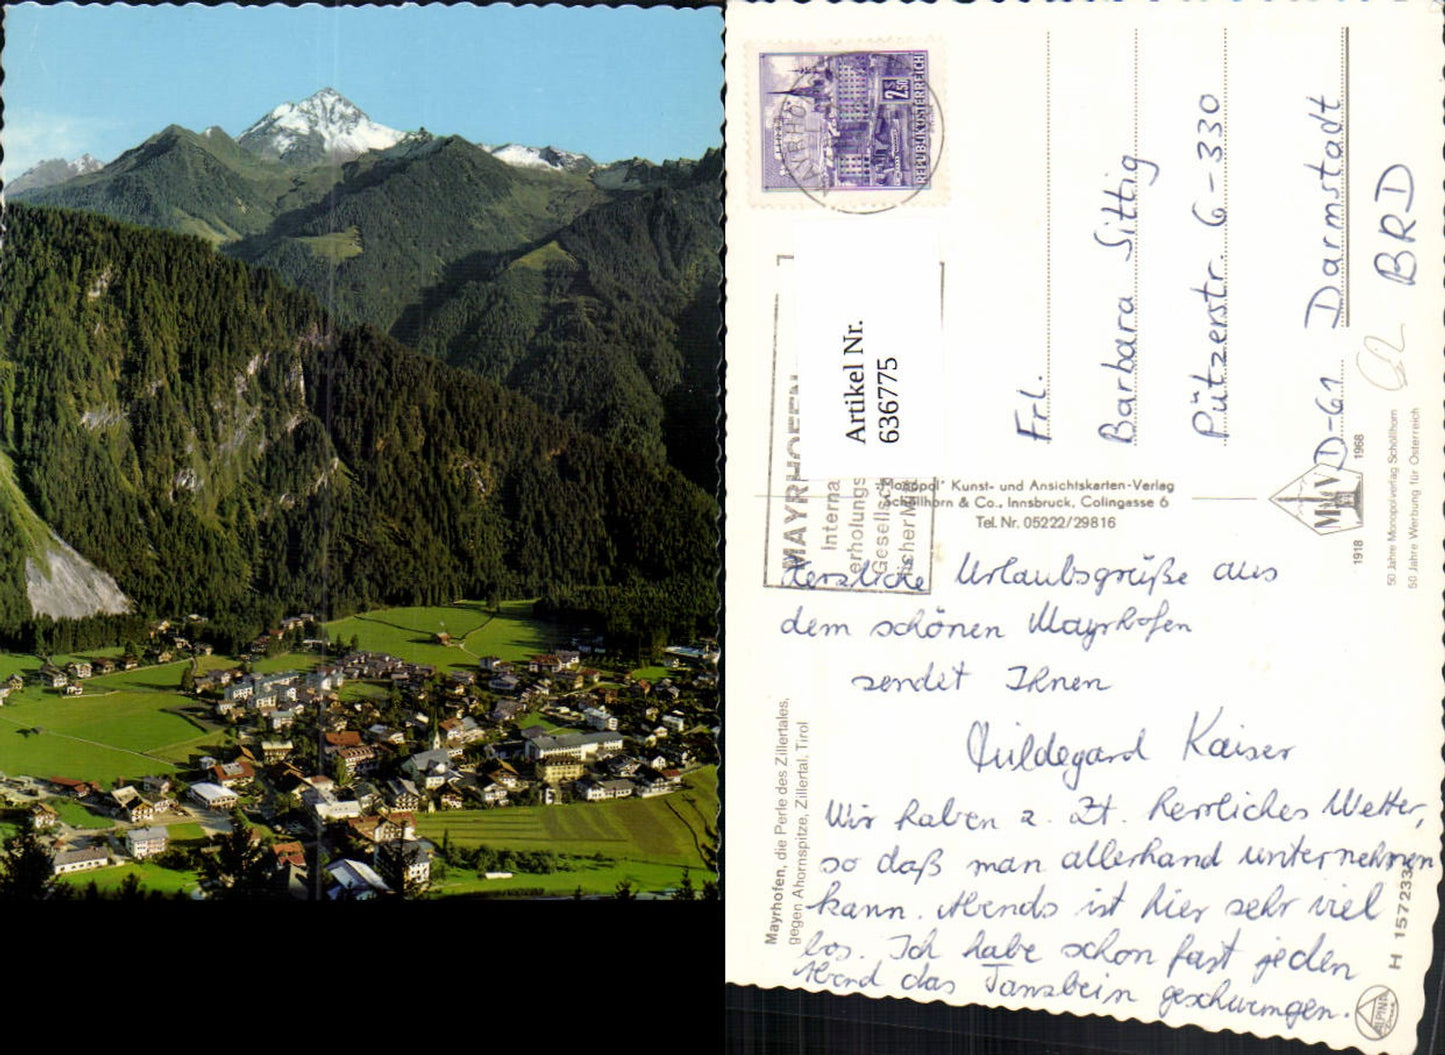 REPUBLIK ÖSTERREICH
MAYRHOFEN
Interna
erholungs
Gesellsch
Artikel Nr.
636775
Frl.
Barbara Sittig
Pützerstr. 6-330
D-61 Darmstadt
BRD
"Monopol" Kunst- und Ansichtskarten-Verlag
Schöllhorn & Co., Innsbruck, Colingasse 6
Tel. Nr. 05222/29816
1918 MKV 1968
50 Jahre Monopolverlag Schöllhorn
50 Jahre Werbung für Österreich
Herzliche Urlaubsgrüße aus
dem schönen Mayrhofen
sendet Ihnen
Hildegard Kaiser
Wir haben z. Zt. herrliches Wetter,
so daß man allerhand unternehmen
kann. Abends ist hier sehr viel
los. Ich habe schon fast jeden
Abend das Tanzbein geschwungen.
Mayrhofen, die Perle des Zillertales,
gegen Ahornspitze, Zillertal, Tirol
H 15723
ALPINA